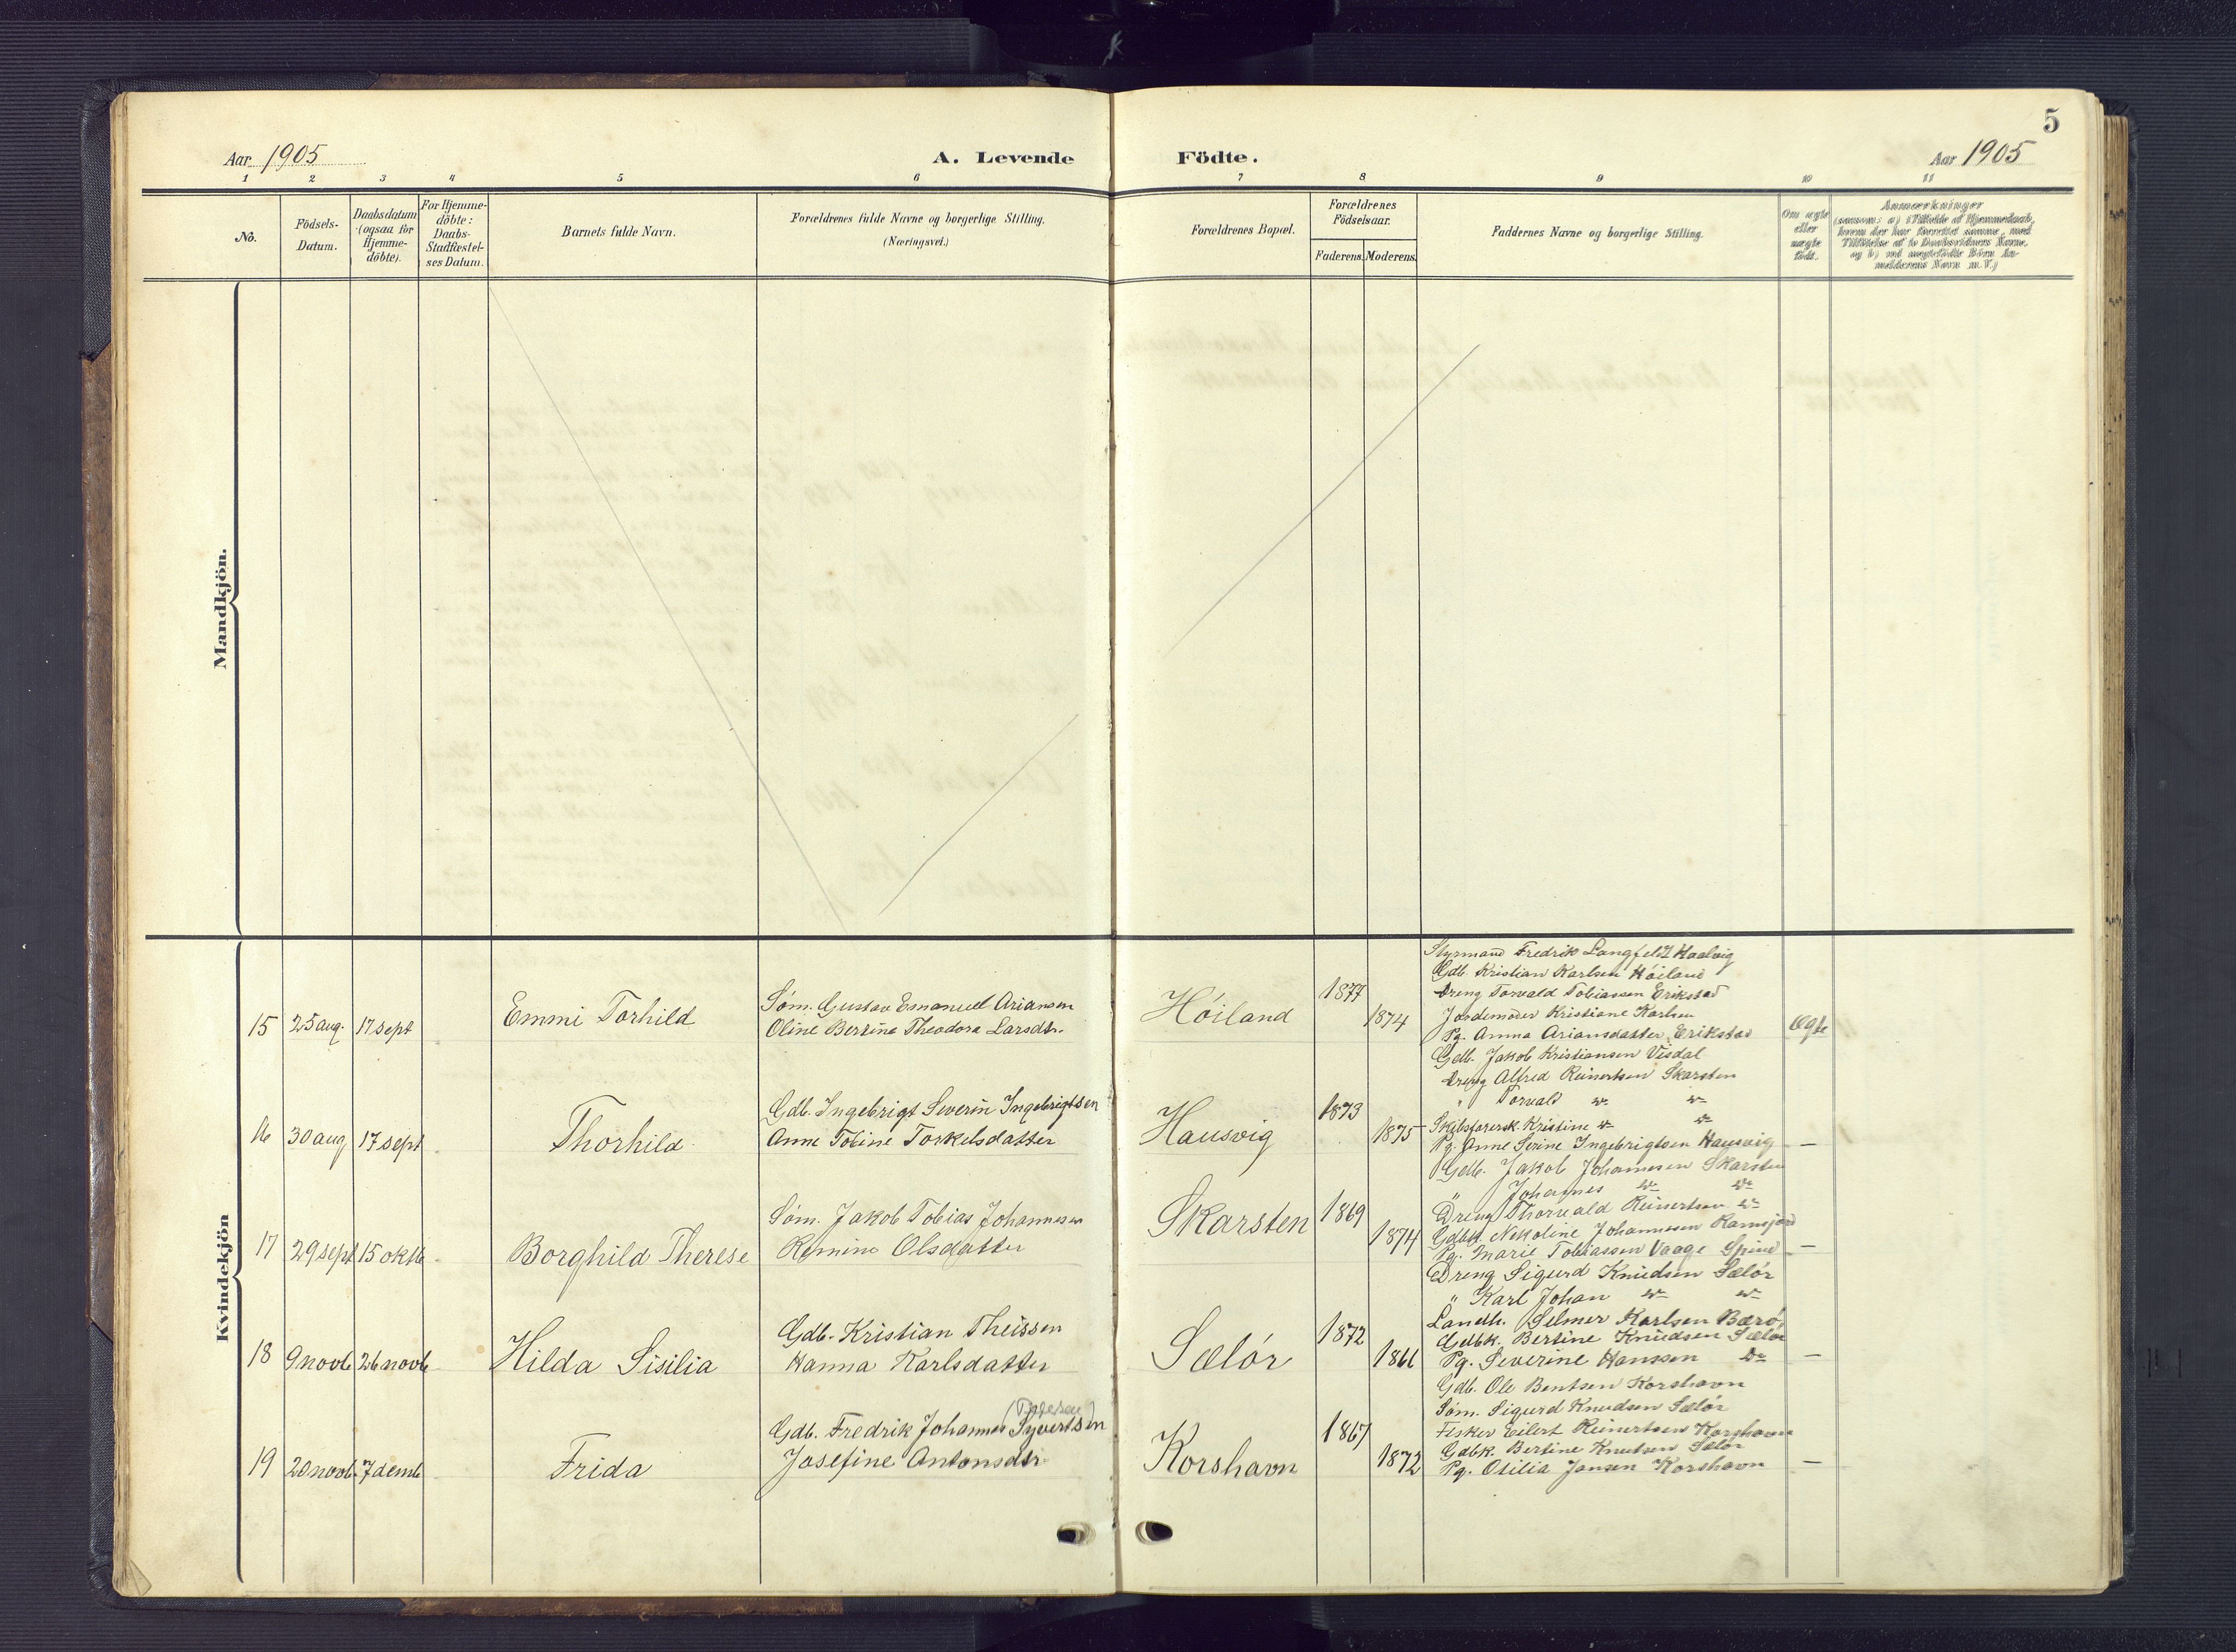 5
Aar 1905
A. Levende
Födte.
Aar 1905
1 2 3 4 5 6 7 8 9 10 11
No.
Födsels-
Datum.
Daabsdatum
(ogsaa for
Hjemme-
döbte).
For Hjemme-
döbte:
Daabs-
Stadfæstel-
ses Datum.
Barnets fulde Navn.
Forældrenes fulde Navne og borgerlige Stilling.
(Næringsvei.)
Forældrenes Bopæl.
Forældrenes
Födselsaar.
Faderens. Moderens.
Faddernes Navne og borgerlige Stilling.
Om ægte
eller
uægte
födt.
Anmærkninger
Mandkjön.
Kvindekjön
15 25 aug. 17 sept
Emmi Torhild
Söm. Gustav Emanuel Ariansen
Oline Bertine Theodora Larsdtr.
Höiland
1877
1874
Styrmand Fredrik Langfeldt Haalvig
Gdb. Kristian Karlsen Höiland
Dreng Torvald Tobiassen Erikstad
Jordemoder Kristiane Karlsen
Pg. Anna Ariansdatter Erikstad
Ægte
16 30 aug 17 sept
Thorhild
Gdb. Ingebrigt Severin Ingebrigtsen
Anne Tobine Torkelsdatter
Hausvig
1873
1875
Gdb. Jakob Kristiansen Visdal
Dreng Alfred Reinertsen Skarsten
" Torvald do do
Skibsförersk. Kristine do do
Pg. Anne Serine Ingebrigtsen Hausvig
—
17 29 sept 15 oktb
Borghild Therese
Söm. Jakob Tobias Johannesen
Romine Olsdatter
Skarsten
1869
1874
Gdb. Jakob Johannesen Skarsten
" Johannes do do
Dreng Thorvald Reinertsen do
Gdbk. Nikoline Johannesen
Pg. Marie Tobiassen Vaage Spind
—
18 9 novb 26 novb
Hilda Sisilia
Gdb. Kristian Theissen
Hanna Karlsdatter
Sælör
1872
1866
Dreng Sigurd Knudsen Sælör
" Karl Johan do do
Landh. Selmer Karlsen Bærö
Gdbk. Bertine Knudsen Sælör
Pg. Severine Hanssen do
—
19 20 novb. 7 demb
Frida
Gdb. Fredrik Johannes Syvertsen
Josefine Antonsdtr
Korshavn
1867
1872
Gdb. Ole Bentsen Korshavn
Söm. Sigurd Knudsen Sælör
Fisker Eilert Reinertsen Korshavn
Gdbk. Bertine Knutsen Sælör
Pg. Otilia Jansen Korshavn
—